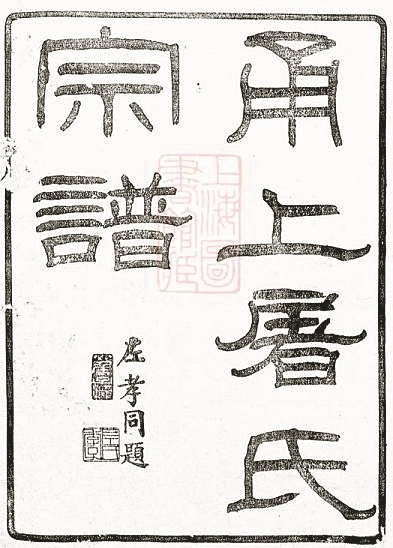 甬上屠氏
宗譜
左孝同題